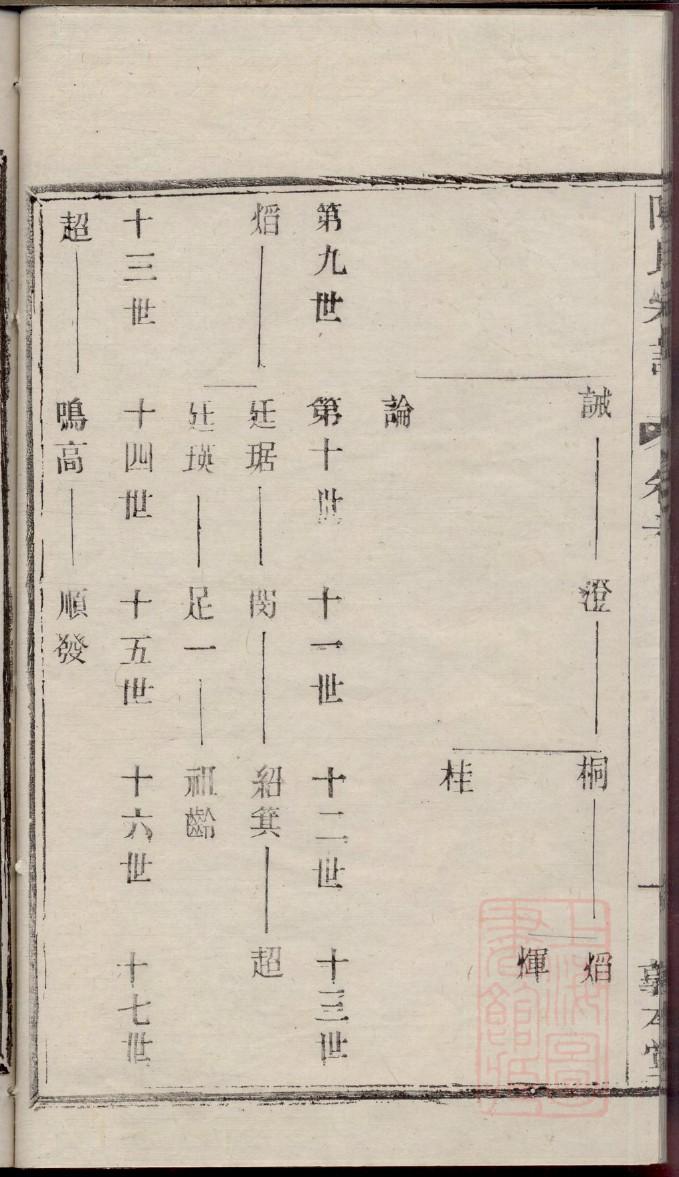 誠 澄 桐 焰
煇
桂
論
第九世 第十世 十一世 十二世 十三世
焰 廷琚 閔 紹箕 超
廷瑛 足一 祖齡
十三世 十四世 十五世 十六世 十七世
超 鳴高 順發